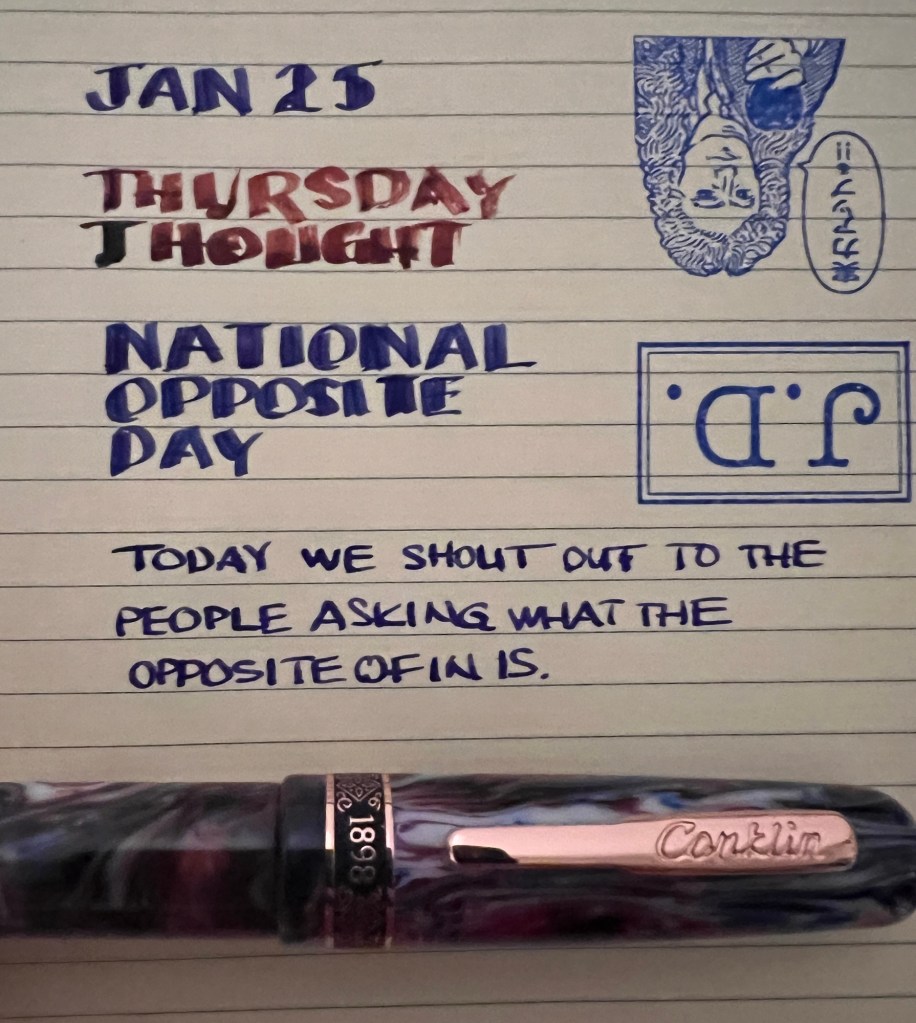 JAN 25
THURSDAY
THOUGHT
NATIONAL
OPPOSITE
DAY
J.D.
TODAY WE SHOUT OUT TO THE
PEOPLE ASKING WHAT THE
OPPOSITE OF IN IS.
1898
Conklin